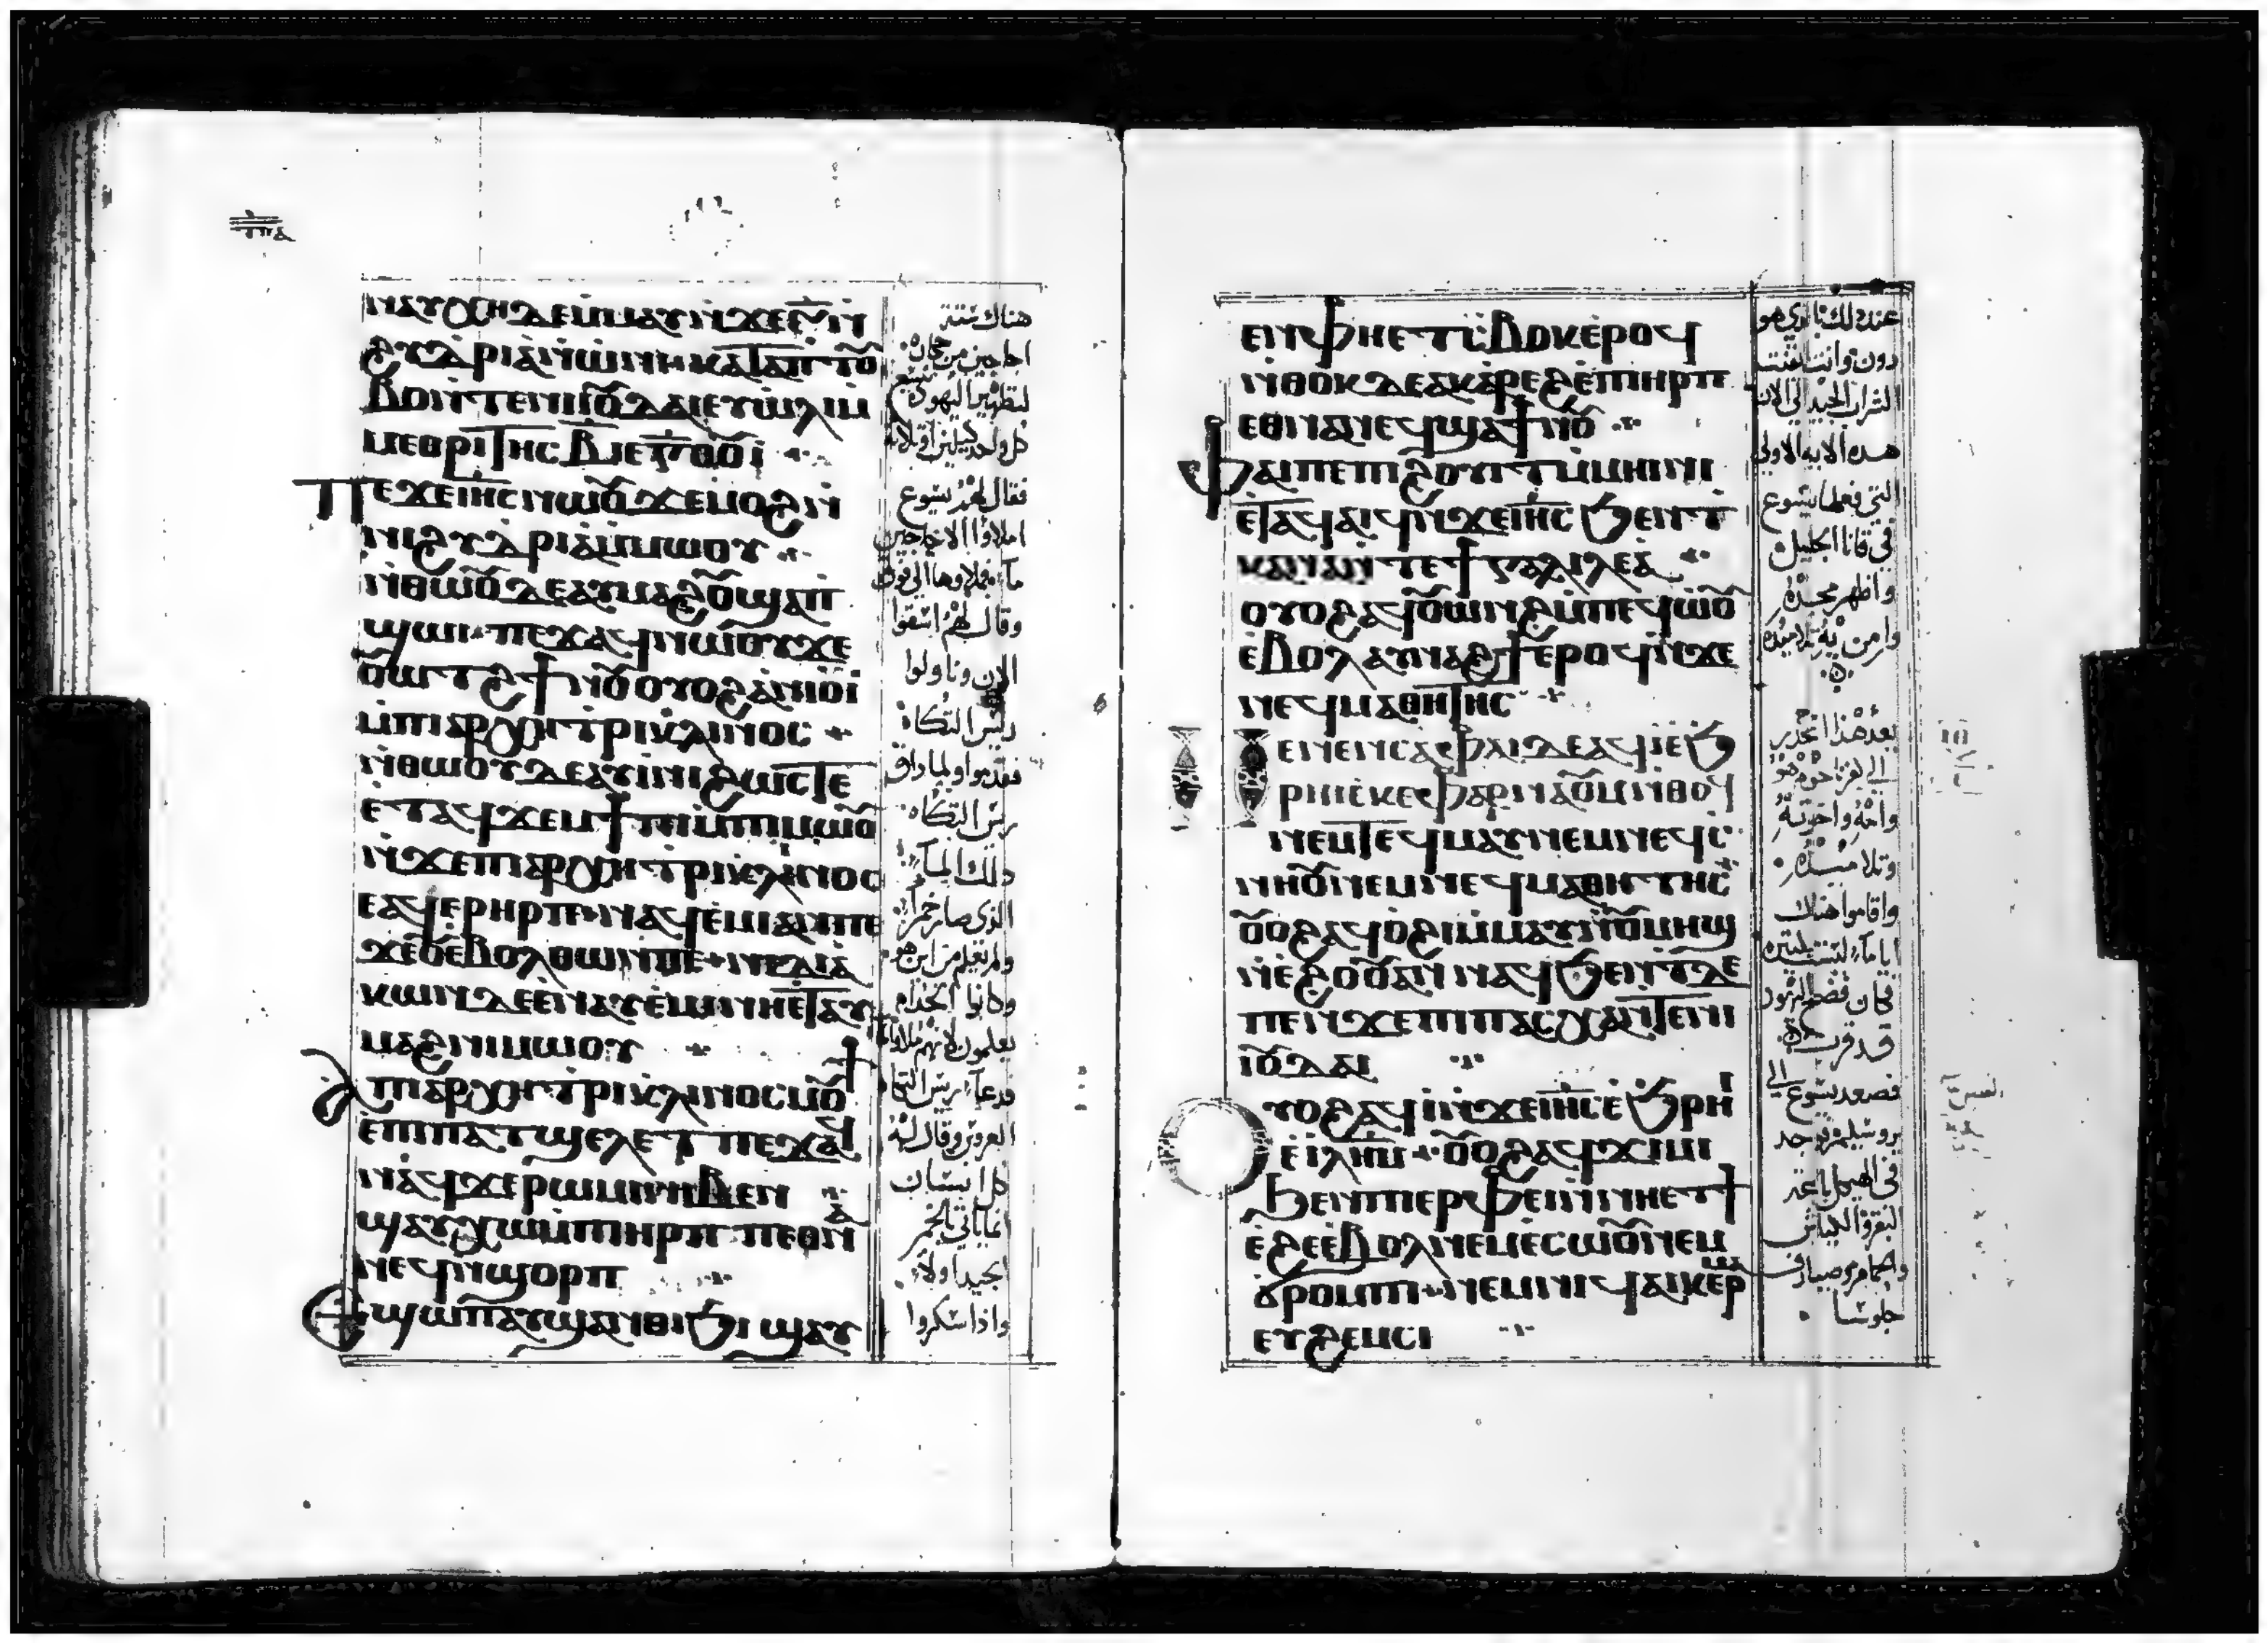 ⲛⲁⲩⲭⲏ ⲇⲉ ⲙ̇ⲙⲁⲩ ⲛ̇ϫⲉ ⲋ̅ ⲛ̇
ϩⲩⲇⲣⲓⲁ ⲛ̇ⲱⲛⲓ ⲕⲁⲧⲁ ⲡⲧⲟⲩ
ⲃⲟ ⲛ̇ⲧⲉ ⲛⲓⲓⲟⲩⲇⲁⲓ ⲉⲩϣⲗⲓ ⲙ̇
ⲙⲉⲑⲣⲓⲧⲏⲥ ⲃ̅ ⲓⲉ ⲅ̅ ⲑⲟⲩⲓ̇
ⲡⲉϫⲉ ⲓⲏ̅ⲥ̅ ⲛⲱⲟⲩ ϫⲉ ⲙⲟϩ ⲛ̇
ⲛⲓϩⲩⲇⲣⲓⲁ ⲙ̇ⲙⲱⲟⲩ
ⲛ̇ⲑⲱⲟⲩ ⲇⲉ ⲁⲩⲙⲁϩⲟⲩ ϣⲁ ⲡ
ϣⲱⲓ ⲡⲉϫⲁϥ ⲛⲱⲟⲩ ϫⲉ
ⲟⲩⲱⲧϩ ϯⲛⲟⲩ ⲟⲩⲟϩ ⲁⲛⲓⲟⲩⲓ̇
ⲙ̇ⲡⲓⲁⲣⲭⲏⲧⲣⲓⲕⲗⲓⲛⲟⲥ
ⲛ̇ⲑⲱⲟⲩ ⲇⲉ ⲁⲩⲓ̇ⲛⲓ ϩⲱⲥⲧⲉ
ⲉ̇ⲧⲁϥϫⲉⲙϯⲡⲓ ⲙ̇ⲡⲓⲙⲱⲟⲩ
ⲛ̇ϫⲉ ⲡⲓⲁⲣⲭⲏⲧⲣⲓⲕⲗⲓⲛⲟⲥ
ⲉⲁϥⲉⲣⲏⲣⲡ ⲛⲁϥⲉ̇ⲙⲓ ⲁⲛ ⲡⲉ
ϫⲉ ⲟⲩⲉ̇ⲃⲟⲗ ⲑⲱⲛ ⲡⲉ ⲛⲓⲇⲓⲁ
ⲕⲱⲛ ⲇⲉ ⲉ̇ⲛⲁⲩⲉ̇ⲙⲓ ⲛⲏ ⲉ̇ⲧⲁⲩ
ⲙⲁϩ ⲛⲓⲙⲱⲟⲩ
ⲁ ⲡⲓⲁⲣⲭⲏⲧⲣⲓⲕⲗⲓⲛⲟⲥ ⲙⲟⲩϯ
ⲉ̇ⲡⲓⲡⲁⲧϣⲉⲗⲉⲧ ⲡⲉϫⲁϥ
ⲛⲁϥ ϫⲉ ⲣⲱⲙⲓ ⲛⲓⲃⲉⲛ
ϣⲁⲩⲭⲱ ⲙ̇ⲡⲓⲏⲣⲡ ⲡⲉⲑⲛⲁ
ⲛⲉϥ ⲛ̇ϣⲟⲣⲡ
ⲉϣⲱⲡ ⲁⲩϣⲁⲛⲑⲓϧⲓ ϣⲁⲩ
هناك ستة
اجاجين من حجارة
لتطهير اليهود تسع
كل واحدة كيلين او ثلاثة
فقال لهم يسوع
املاؤا الاجاجين
ماء فملاوها الى فوق
وقال لهم استقوا
الان وناولوا
رئيس التكاة
فقدموا ولما ذاق
ريس التكاه
ذلك الماء
الذي صار خمراً
ولم يعلم من اين هو
وكانوا الخدام
يعلمون لانهم ملاوا
فدعا ريس التكا
العروس وقال له
كل انسان
انما ياتي بالخمر
الجيد اولاً
واذا سكروا
ⲉⲓⲛ ⲫⲏ ⲉⲧϭⲃⲟⲕ ⲉ̇ⲣⲟϥ
ⲛ̇ⲑⲟⲕ ⲇⲉ ⲁⲕⲁⲣⲉϩ ⲉ̇ⲡⲓⲏⲣⲡ
ⲉⲑⲛⲁⲛⲉϥ ϣⲁ ϯⲛⲟⲩ
ⲫⲁⲓ ⲡⲉ ⲡⲓϩⲟⲩⲓⲧ ⲙ̇ⲙⲏⲓⲛⲓ
ⲉ̇ⲧⲁϥⲁⲓϥ ⲛ̇ϫⲉ ⲓⲏ̅ⲥ̅ ϧⲉⲛ ⲧ
ⲧⲉ ϯⲅⲁⲗⲓⲗⲉⲁ
ⲟⲩⲟϩ ⲁϥⲟⲩⲱⲛϩ ⲙ̇ⲡⲉϥⲱⲟⲩ
ⲉ̇ⲃⲟⲗ ⲁⲩⲛⲁϩϯ ⲉ̇ⲣⲟϥ ⲛ̇ϫⲉ
ⲛⲉϥⲙⲁⲑⲏⲧⲏⲥ
ⲙⲉⲛⲉⲛⲥⲁ ⲫⲁⲓ ⲇⲉ ⲁϥⲓ̇ ⲉ̇ϧ
ⲣⲏⲓ ⲉ̇ⲕⲉⲫⲁⲣⲛⲁⲟⲩⲙ ⲛ̇ⲑⲟϥ
ⲛⲉⲙ ⲧⲉϥⲙⲁⲩ ⲛⲉⲙ ⲛⲉϥⲥ
ⲛⲏⲟⲩ ⲛⲉⲙ ⲛⲉϥⲙⲁⲑⲏⲧⲏⲥ
ⲟⲩⲟϩ ⲁϥⲟϩⲓ ⲙ̇ⲙⲁⲩ ⲛ̇ⲟⲩⲙⲏϣ
ⲛ̇ⲉ̇ϩⲟⲟⲩ ⲁⲛ ⲛⲁϥϧⲉⲛⲧ ⲇⲉ
ⲡⲉ ⲛ̇ϫⲉ ⲡⲓⲡⲁⲥⲭⲁ ⲛ̇ⲧⲉ ⲛⲓ
ⲓⲟⲩⲇⲁⲓ
ⲟⲩⲟϩ ⲁϥⲓ̇ ⲛ̇ϫⲉ ⲓⲏ̅ⲥ̅ ⲉ̇ϧⲣⲏⲓ
ⲉ̇ⲓ̅ⲗ̅ⲏ̅ⲙ̅ ⲟⲩⲟϩ ⲁϥϫⲓⲙⲓ
ϧⲉⲛ ⲡⲓⲉⲣⲫⲉⲓ ⲛ̇ⲛⲏ ⲉⲧϯ
ⲉ̇ϩⲉ ⲉ̇ⲃⲟⲗ ⲛⲉⲙ ⲉ̇ⲥⲱⲟⲩ ⲛⲉⲙ
ϭⲣⲟⲙⲡⲓ ⲛⲉⲙ ⲛⲓϥⲁⲓⲕⲉⲣⲙⲁ
ⲉⲩϩⲉⲙⲥⲓ
عند ذلك ياتي بما هو
دون وانت ابقيت
الشراب الجيد الى الان
هذه الايه الاولى
التي فعلها يسوع
في قانا الجليل
واظهر مجده
وامن به تلاميذه
بعد هذا انحدر
الى كفرناحوم هو
وامه واخوته
وتلاميذه
واقاموا هناك
اياماً ليست بكثيرة
فكان فصح اليهود
قد قرب
فصعد يسوع الى
يروشليم فوجد
في الهيكل باعة
البقر والكباش
والحمام وصيارف
جلوسا